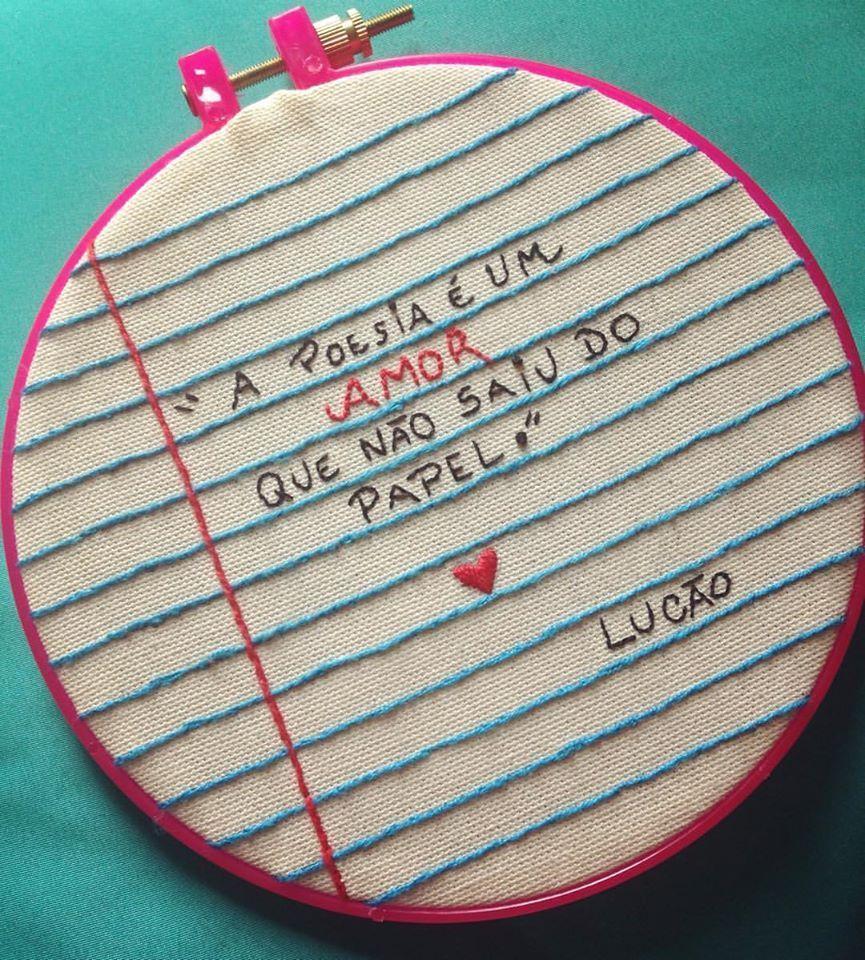 "A POESIA É UM
AMOR
QUE NÃO SAIU DO
PAPEL."
LUCÃO